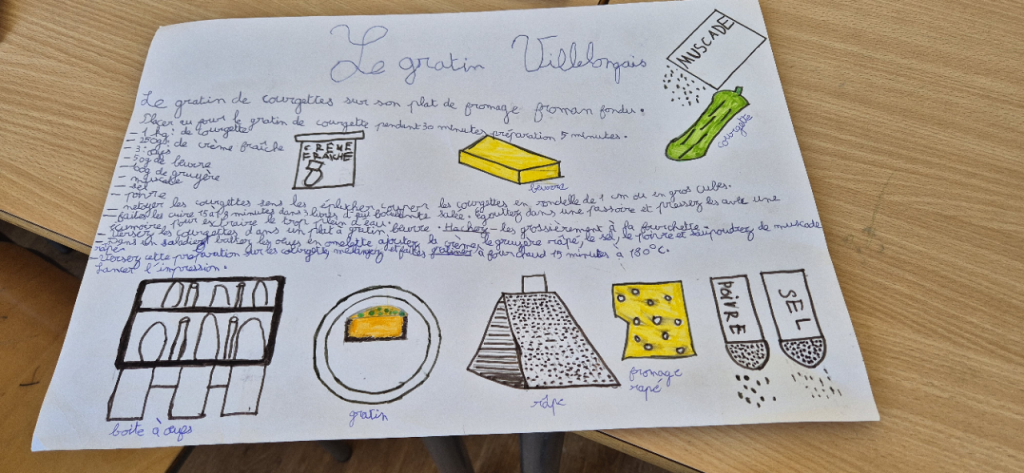 Le gratin Villelongais
MUSCADE
Le gratin de courgettes sur son plat de fromage froman fondu.
pour le gratin de courgette pendant 30 minutes préparation 5 minutes.
- 1 kg: de courgette
- 250g: de crème fraîche
- 3: œufs
- 50g de beurre
- 60g de gruyère
- muscade
- sel
- poivre
CRÈME
FRAÎCHE
beurre
courgette
- netoyer les courgettes sens les éplucher couper les courgettes en rondelle de 1 cm ou en gros cubes.
- faites les cuire 15 a minutes dans 3 litres d'eau bouillante salée. égoutter dans une passoire et pressez les avec une
écumoires pour extraire le trop plein d'eau.
- versez les courgettes dans un plat à gratin beurre. Hachez-les grossièrement à la fourchette.
- Dans un saladier battez les œufs en omelette ajoutez la crème, le gruyère rapé, le sel, le poivre et saupoudrez de muscade
rapée
- versez cette préparation sur les courgettes, mélangez et faites à four chaud 15 minutes a 180°C.
Lancer l'impression.
POIVRE
SEL
boite à œufs
gratin
râpe
fromage
rapé